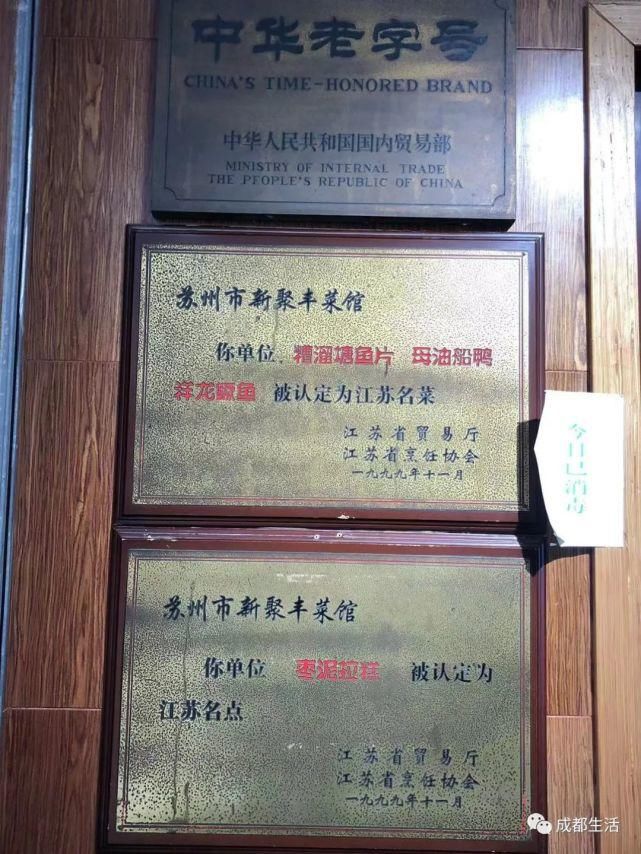 中华老字号
CHINA'S TIME-HONORED BRAND
中华人民共和国国内贸易部
MINISTRY OF INTERNAL TRADE
THE PEOPLE'S REPUBLIC OF CHINA
苏州市新聚丰菜馆
你单位 糟溜塘鱼片 母油船鸭
祥龙鳜鱼 被认定为江苏名菜
江苏省貿易厅
江苏省烹饪协会
一九九九年十一月
今日已消毒
苏州市新聚丰菜馆
你单位 枣泥拉糕 被认定为
江苏名点
江苏省貿易厅
江苏省烹饪协会
一九九九年十一月
成都生活